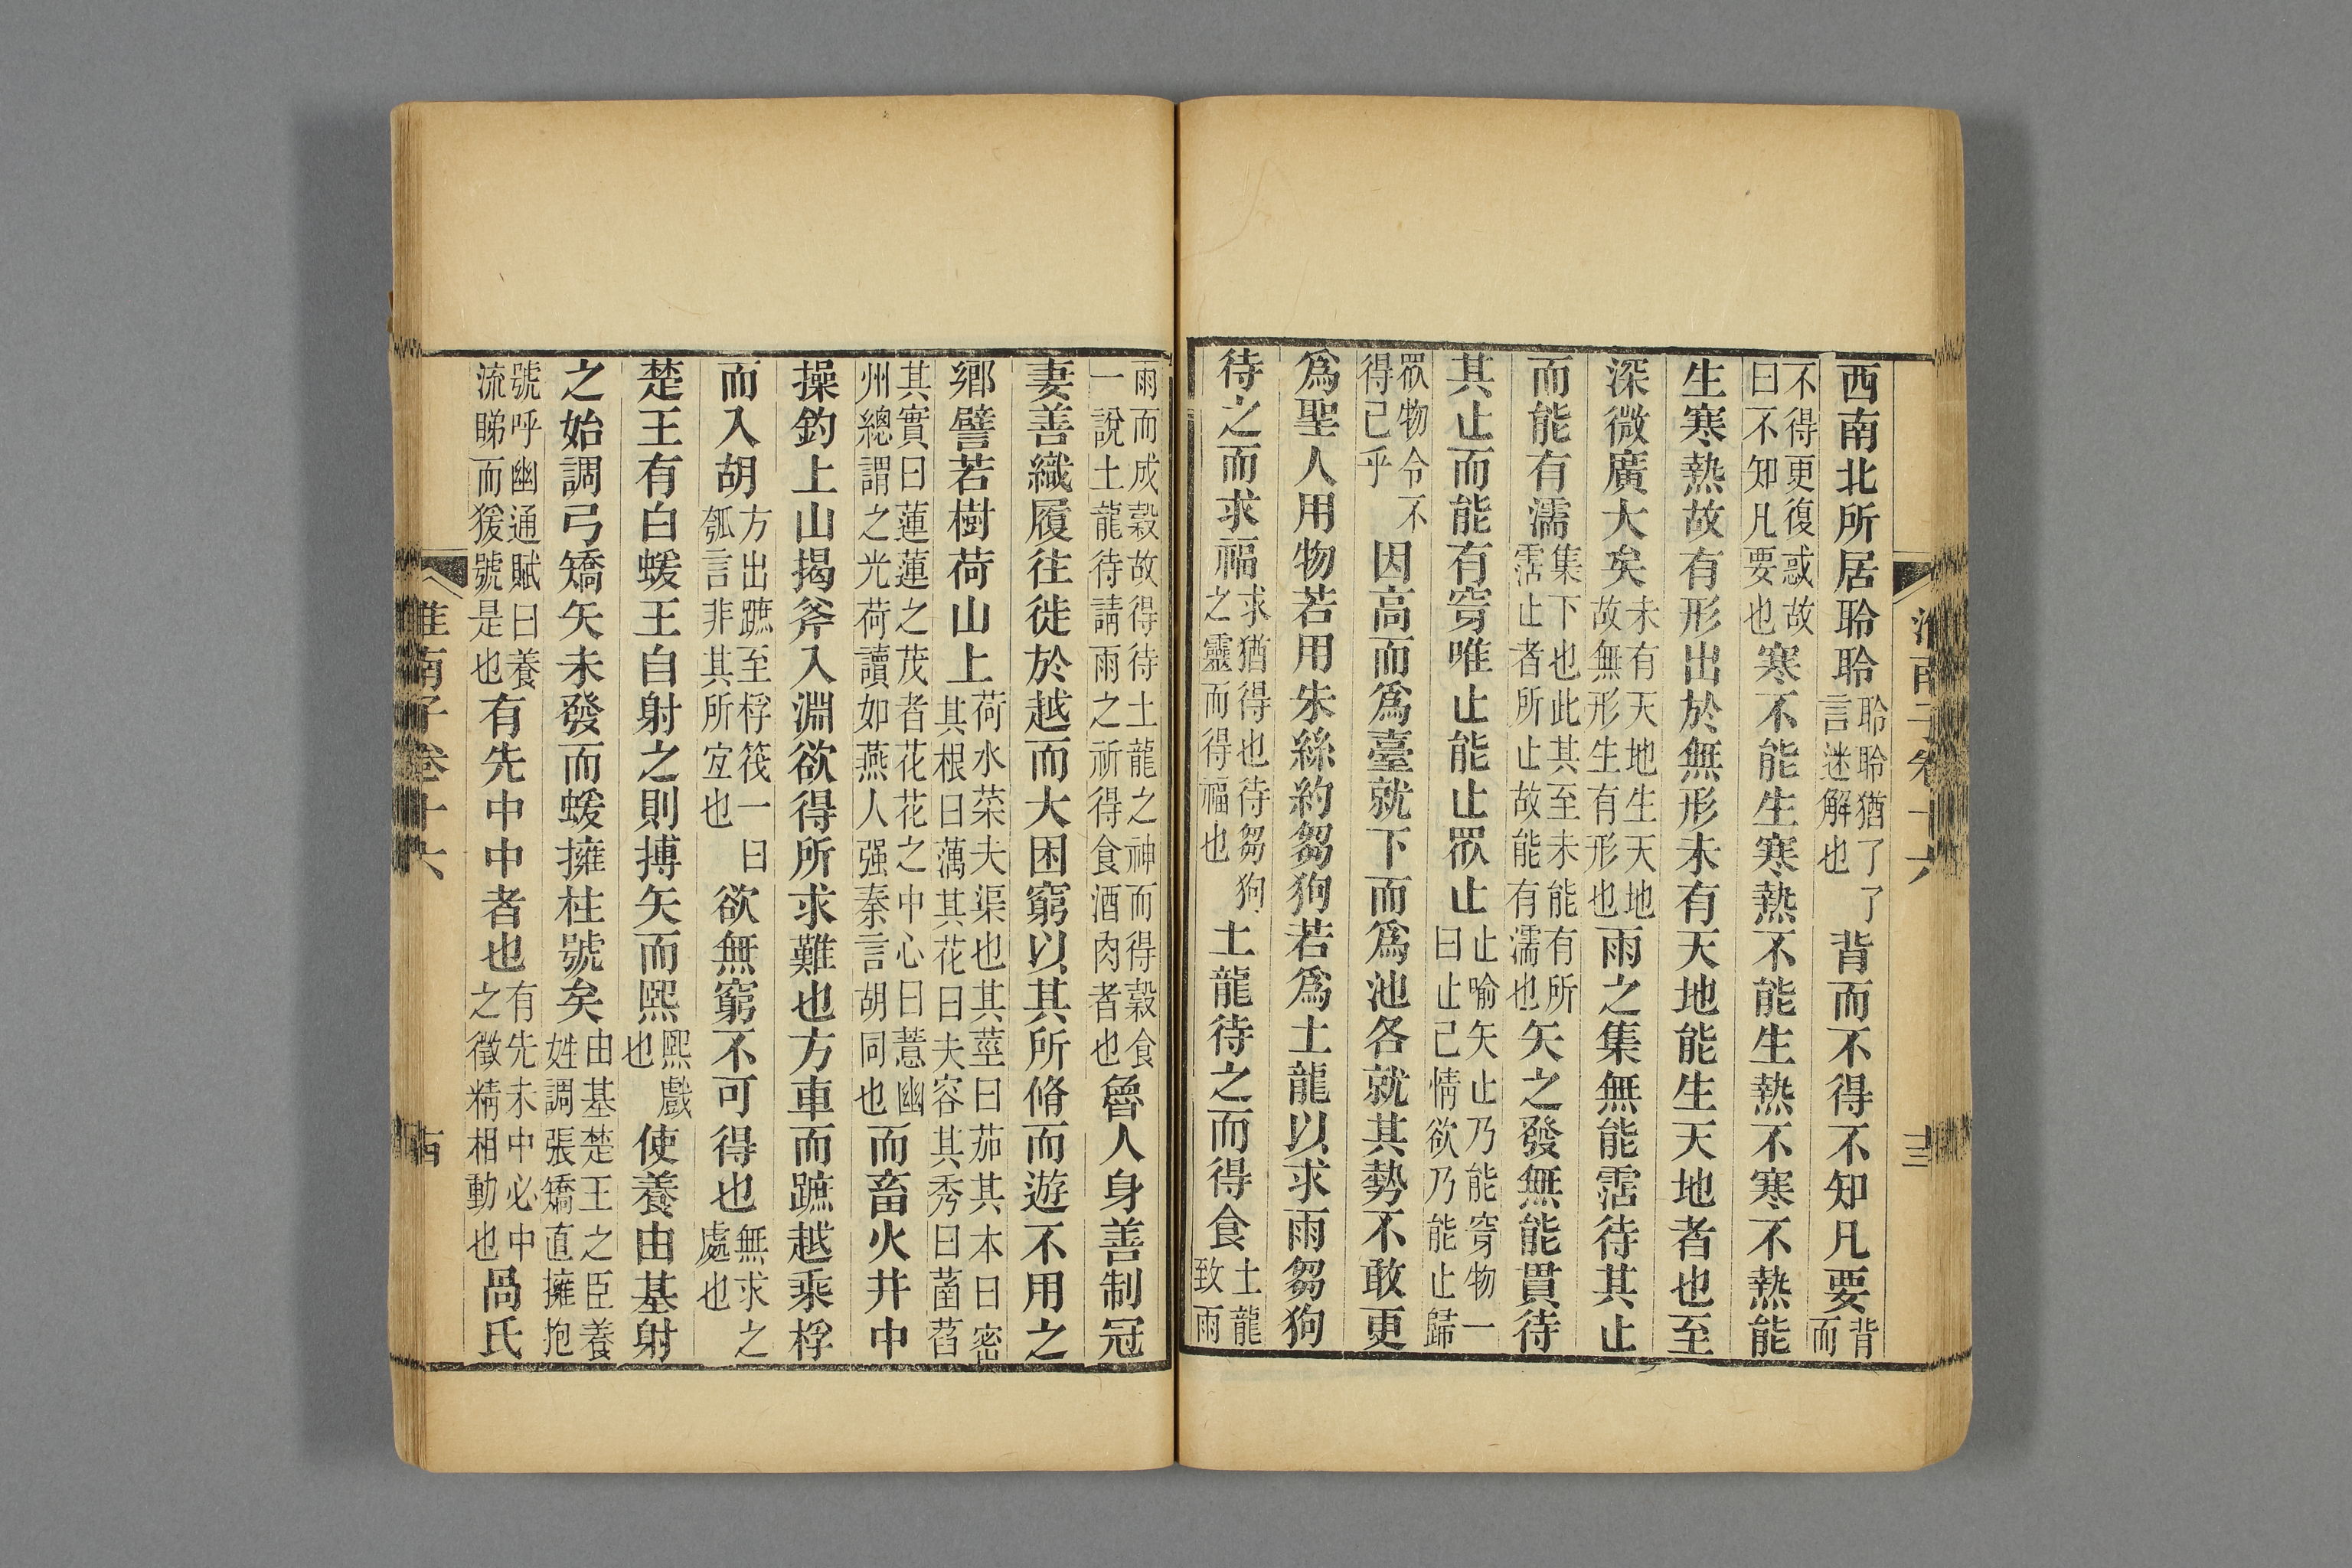 淮南子卷十六
西南北所居聆聆聆聆猶了了言迷解也背而不得不知凡要背而
不得更復惑故曰不知凡要也寒不能生寒熱不能生熱不寒不熱能
生寒熱故有形出於無形未有天地能生天地者也至
深微廣大矣未有天地生天地故無形生有形也雨之集無能霑待其止
而能有濡集下也此其至未能有所霑止者所止故能有濡也矢之發無能貫待
其止而能有穿唯止能止眾止止喻矢止乃能穿物一曰止己情欲乃能止歸
眾物令不得己乎因高而爲臺就下而爲池各就其勢不敢更
爲聖人用物若用朱絲約芻狗若爲土龍以求雨芻狗
待之而求福求猶得也待芻狗之靈而得福也土龍待之而得食土龍致雨
雨而成穀故得待土龍之神而得穀食一說土龍待請雨之祈得食酒肉者也魯人身善制冠
妻善織履往徙於越而大困窮以其所脩而遊不用之
鄉譬若樹荷山上荷水菜夫渠也其莖曰茄其本曰密其根曰藕其花曰夫容其秀曰菡萏
其實曰蓮蓮之茂者花花之中心曰薏幽州總謂之光荷讀如燕人强秦言胡同也而畜火井中
操釣上山揭斧入淵欲得所求難也方車而蹠越乘桴
而入胡方出蹠至桴筏一曰瓠言非其所宜也欲無窮不可得也無求之處也
楚王有白蝯王自射之則搏矢而熙熙戲也使養由基射
之始調弓矯矢未發而蝯擁柱號矣由基楚王之臣養姓調張矯直擁抱
號呼幽通賦曰養流睇而猨號是也有先中中者也有先未中必中之徵精相動也咼氏
淮南子卷十六